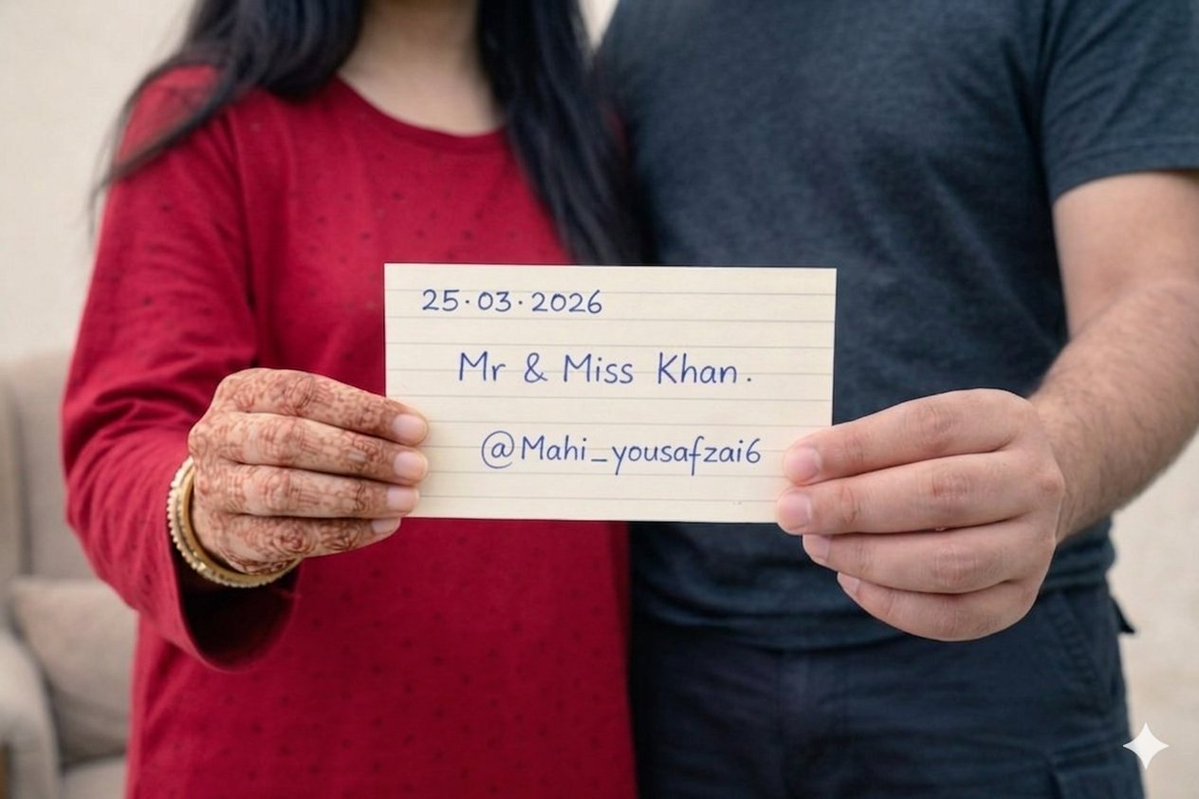 25·03·2026
Mr & Miss Khan.
@Mahi_yousafzai6